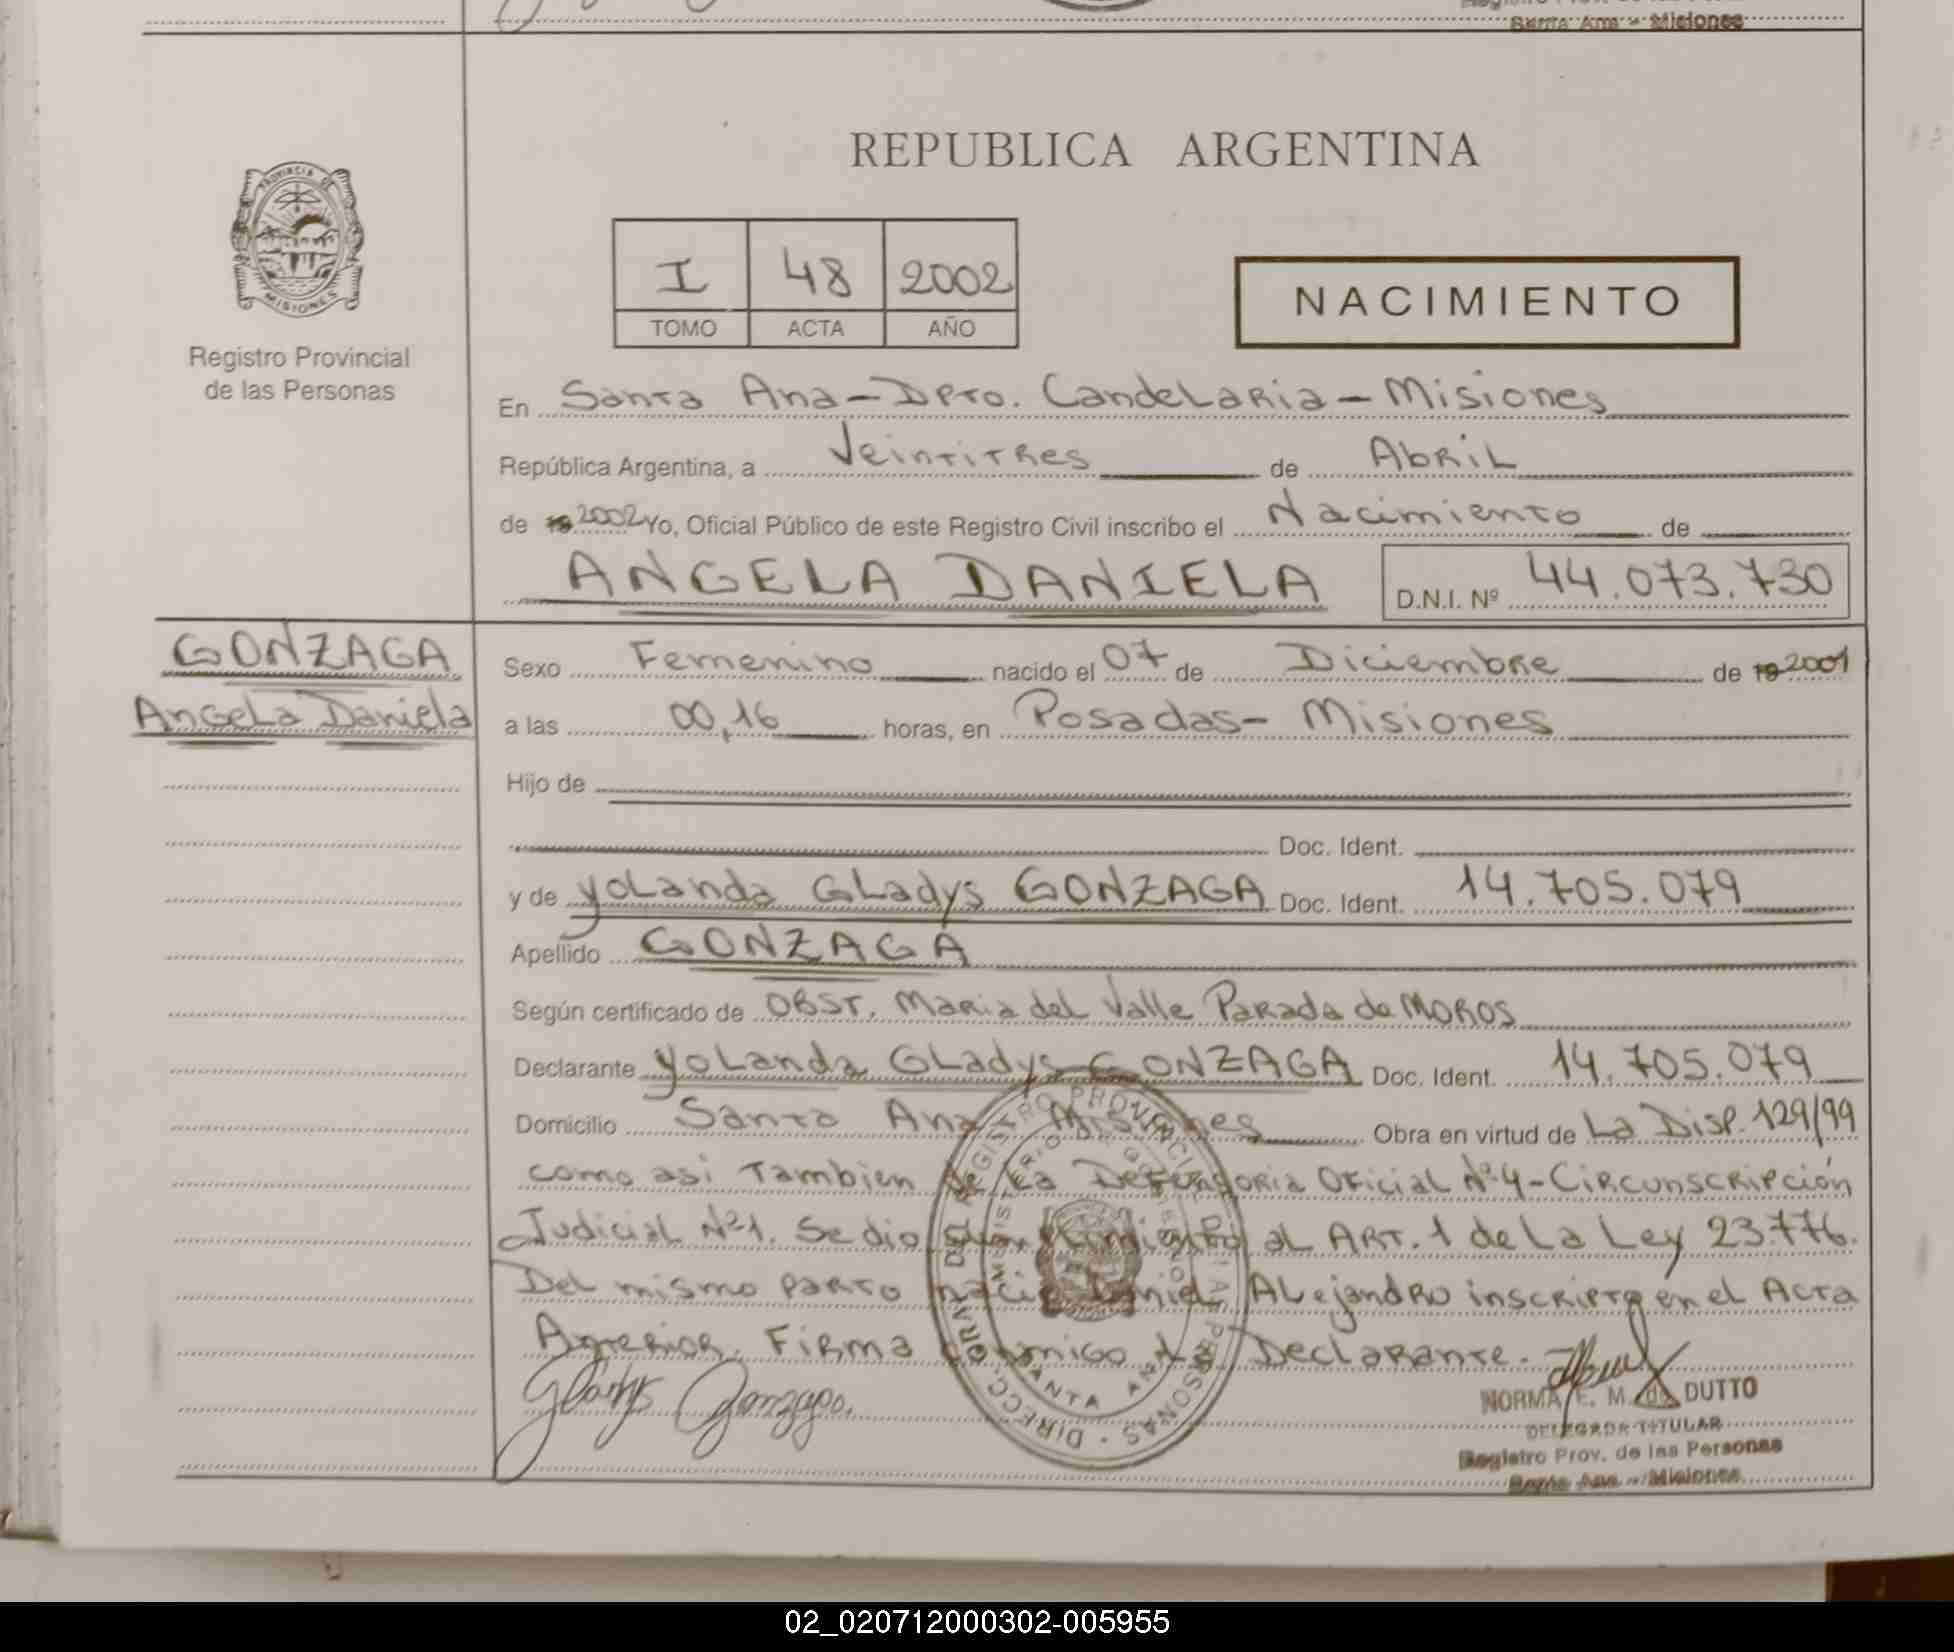 Santa Ana - Misiones
REPUBLICA ARGENTINA
PROVINCIA DE
MISIONES
Registro Provincial
de las Personas
I 48 2002
TOMO ACTA AÑO
NACIMIENTO
En Santa Ana - Dpto. Candelaria - Misiones
República Argentina, a Veintitres de Abril
de 19 2002 Yo, Oficial Público de este Registro Civil inscribo el Nacimiento de
ANGELA DANIELA D.N.I. Nº 44.073.730
GONZAGA
Angela Daniela
Sexo Femenino nacido el 07 de Diciembre de 19 2001
a las 00,16 horas, en Posadas - Misiones
Hijo de
Doc. Ident.
y de Yolanda Gladys GONZAGA Doc. Ident. 14.705.079
Apellido GONZAGA
Según certificado de OBST. Maria del Valle Parada de MOROS
Declarante Yolanda Gladys GONZAGA Doc. Ident. 14.705.079
Domicilio Santa Ana Misiones Obra en virtud de La Disp. 129/99
como asi Tambien de La Defensoria Oficial Nº 4 - Circunscripción
Judicial Nº 1. Se dio cumplimiento al ART. 1 de La Ley 23.776.
Del mismo parto nacio Daniel Alejandro inscripto en el Acta
Anterior. Firma conmigo La Declarante.
Gladys Gonzaga.
NORMA E. M. de DUTTO
DELEGADA TITULAR
Registro Prov. de las Personas
Santa Ana - Misiones
02_020712000302-005955